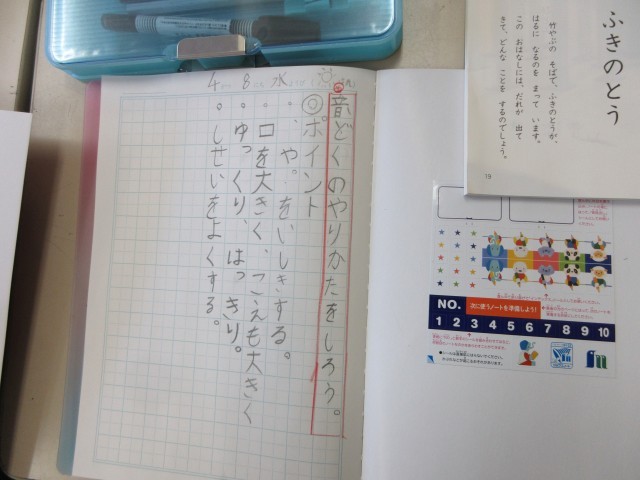 ふきのとう
竹やぶの そばで、ふきのとうが、
はるに なるのを まって います。
この おはなしには、だれが 出て
きて、どんな ことを するのでしょう。
19
4 8 水
音どくのやりかたをしろう。
◎ポイント
・、や。をいしきする。
・口を大きく、こえも大きく
・ゆっくり、はっきり。
・しせいをよくする。
NO. 次に使うノートを準備しよう!
1 2 3 4 5 6 7 8 9 10